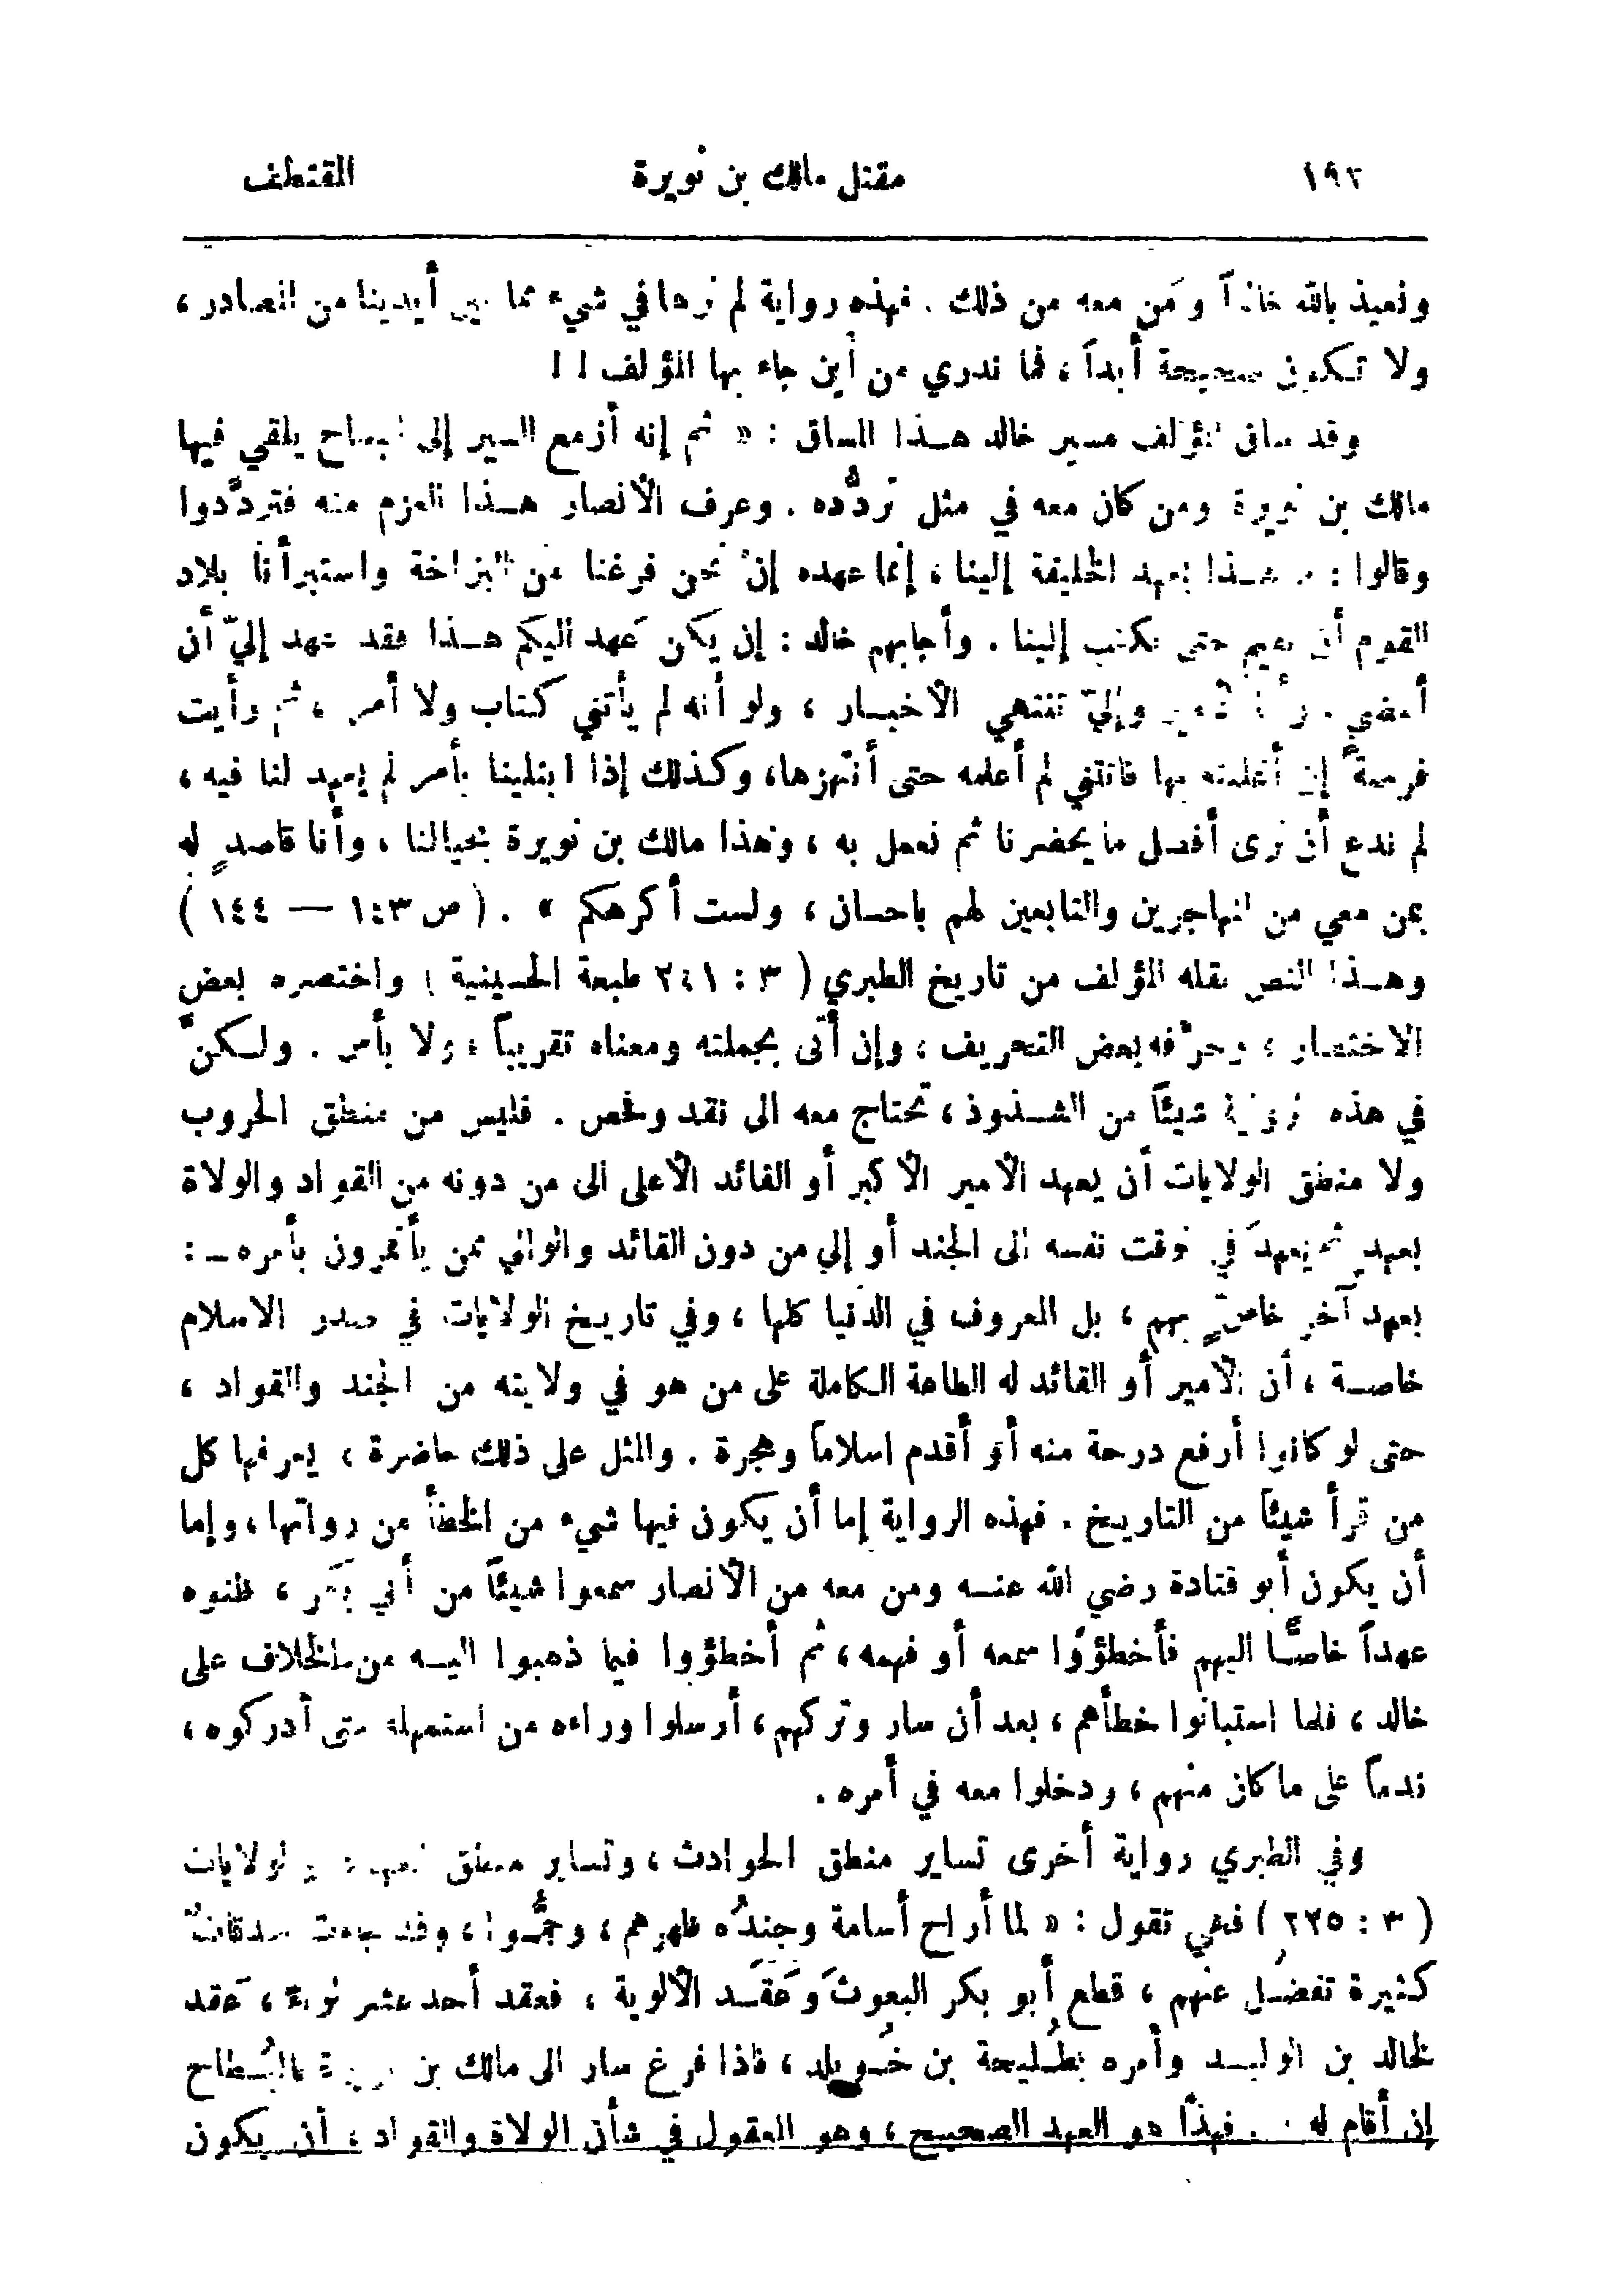 ١٩٢ مقتل مالك بن نويرة المقتطف
ونعيذ بالله خالداً ومَن معه من ذلك . فهذه رواية لم نرها في شيء مما بين أيدينا من المصادر ،
ولا تكون صحيحة أبداً ، فما ندري من أين جاء بها المؤلف ! !
وقد ساق المؤلف مسير خالد هذا المساق : « ثم إنه أزمع السير إلى البطاح يلقي فيها
مالك بن نويرة ومن كان معه في مثل تردُّده . وعرف الأنصار هذا العزم منه فتردَّدوا
وقالوا : ما هذا بعهد الخليفة إلينا ، إنما عهده إنْ نحن فرغنا من البزاخة واستبرأنا بلاد
القوم أن نقيم حتى يكتب إلينا . وأجابهم خالد : إن يكن عَهد اليكم هذا فقد عهد إليّ أن
أمضي . وأنا الأمير وإليّ تنتهي الأخبار ، ولو أنه لم يأتني كتاب ولا أمر ، ثم رأيت
فرصةً إن أعلمته بها فاتتني لم أعلمه حتى أنتهزها ، وكذلك إذا ابتلينا بأمر لم يعهد لنا فيه ،
لم ندع أن نرى أفضل ما يحضرنا ثم نعمل به ، وهذا مالك بن نويرة بحيالنا ، وأنا قاصدٍ له
بمن معي من المهاجرين والتابعين لهم باحسان ، ولست أكرهكم » . ( ص ١٤٣ — ١٤٤ )
وهذا النص نقله المؤلف من تاريخ الطبري ( ٣ : ٢٤١ طبعة الحسينية ) واختصره بعض
الاختصار ، وحرَّفه بعض التحريف ، وإن أتى بجملته ومعناه تقريباً ، ولا بأس . ولكنَّ
في هذه الرواية شيئاً من الشذوذ ، تحتاج معه الى نقد وفحص . فليس من منطق الحروب
ولا منطق الولايات أن يعهد الأمير الأكبر أو القائد الأعلى الى من دونه من القواد والولاة
بعهدٍ ثم يعهدَ في الوقت نفسه الى الجند أو إلى من دون القائد والوالي ممن يأتمرون بأمره — :
بعهد آخر خاصٍّ بهم ، بل المعروف في الدنيا كلها ، وفي تاريخ الولايات في صدر الاسلام
خاصة ، أن الأمير أو القائد له الطاعة الكاملة على من هو في ولايته من الجند والقواد ،
حتى لو كانوا أرفع درجة منه أو أقدم اسلاماً وهجرة . والمثل على ذلك حاضرة ، يعرفها كل
من قرأ شيئاً من التاريخ . فهذه الرواية إما أن يكون فيها شيء من الخطأ من رواتها ، وإما
أن يكون أبو قتادة رضي الله عنه ومن معه من الأنصار سمعوا شيئاً من أبي بكر ، ظنوه
عهداً خاصًّا اليهم فأخطؤوا سمعه أو فهمه ، ثم أخطؤوا فيما ذهبوا اليه من الخلاف على
خالد ، فلما استبانوا خطأهم ، بعد أن سار وتركهم ، أرسلوا وراءه من استمهله حتى أدركوه ،
ندماً على ما كان منهم ، ودخلوا معه في أمره .
وفي الطبري رواية أخرى تساير منطق الحوادث ، وتساير منطق العهود والولايات
( ٣ : ٢٢٥ ) فهي تقول : « لما أراح أسامة وجندُه ظهرهم ، وجمُّوا ، وقد جاءت صدقاتٌ
كثيرة تفضُل عنهم ، قطع أبو بكر البعوثَ وعَقَد الألوية ، فعقد أحد عشر لواءً ، عَقد
لخالد بن الوليد وأمره بطُليحة بن خُويلد ، فاذا فرغ سار الى مالك بن نويرة بالبُطاح
إن أقام له » . فهذا هو العهد الصحيح ، وهو المعقول في شأن الولاة والقواد ، أن يكون